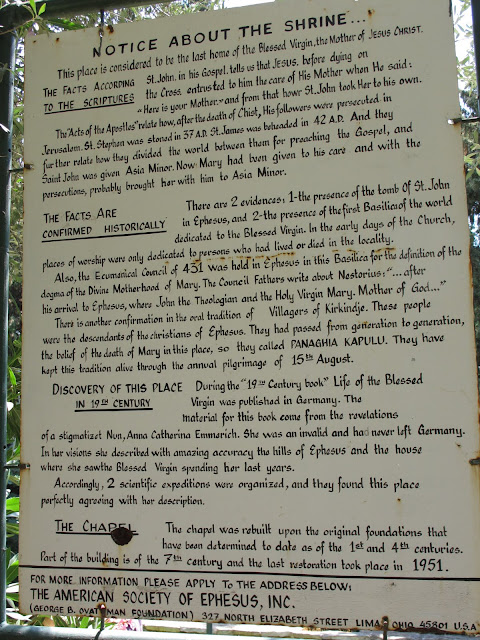 NOTICE ABOUT THE SHRINE...
This place is considered to be the last home of the Blessed Virgin, the Mother of JESUS CHRIST.
THE FACTS ACCORDING TO THE SCRIPTURES
St. John, in his Gospel, tells us that JESUS, before dying on
the Cross entrusted to him the care of His Mother when He said:
"Here is your Mother." and from that howr St. John took Her to his own.
The "Acts of the Apostles" relate how, after the death of Chist, His followers were persecuted in
Jerusalem. St. Stephen was stoned in 37 A.D. St. James was beheaded in 42 A.D. And they
further relate how they divided the world between them for preaching the Gospel, and
Saint John was given Asia Minor. Now Mary had been given to his care and with the
persecutions, probably brought her with him to Asia Minor.
THE FACTS ARE CONFIRMED HISTORICALLY
There are 2 evidences: 1-the presence of the tomb Of St. John
in Ephesus, and 2-the presence of the first Basilica of the world
dedicated to the Blessed Virgin. In the early days of the Church,
places of worship were only dedicated to persons who had lived or died in the locality.
Also, the Ecumenical Council of 431 was held in Ephesus in this Basilica for the definition of the
dogma of the Divine Motherhood of Mary. The Council Fathers write about Nestorius: "... after
his arrival to Ephesus, where John the Theologian and the Holy Virgin Mary. Mother of God..."
There is another confirmation in the oral tradition of Villagers of Kirkindje. These people
were the descendants of the christians of Ephesus. They had passed from generation to generation,
the belief of the death of Mary in this place, so they called PANAGHIA KAPULU. They have
kept this tradition alive through the annual pilgrimage of 15th August.
DISCOVERY OF THIS PLACE IN 19TH CENTURY
During the "19TH Century book" Life of the Blessed
Virgin was published in Germany. The
material for this book come from the revelations
of a stigmatizet Nun, Anna Catherina Emmerich. She was an invalid and had never left Germany.
In her visions she described with amazing accuracy the hills of Ephesus and the house
where she saw the Blessed Virgin spending her last years.
Accordingly, 2 scientific expeditions were organized, and they found this place
perfectly agreeing with her description.
THE CHAPEL
The chapel was rebuilt upon the original foundations that
have been determined to date as of the 1st and 4th centuries.
Part of the building is of the 7th century and the last restoration took place in 1951.
FOR MORE INFORMATION PLEASE APPLY TO THE ADDRESS BELOW:
THE AMERICAN SOCIETY OF EPHESUS, INC.
(GEORGE B. FOUNDATION) 327 NORTH ELIZABETH STREET LIMA OHIO 45801 U.S.A